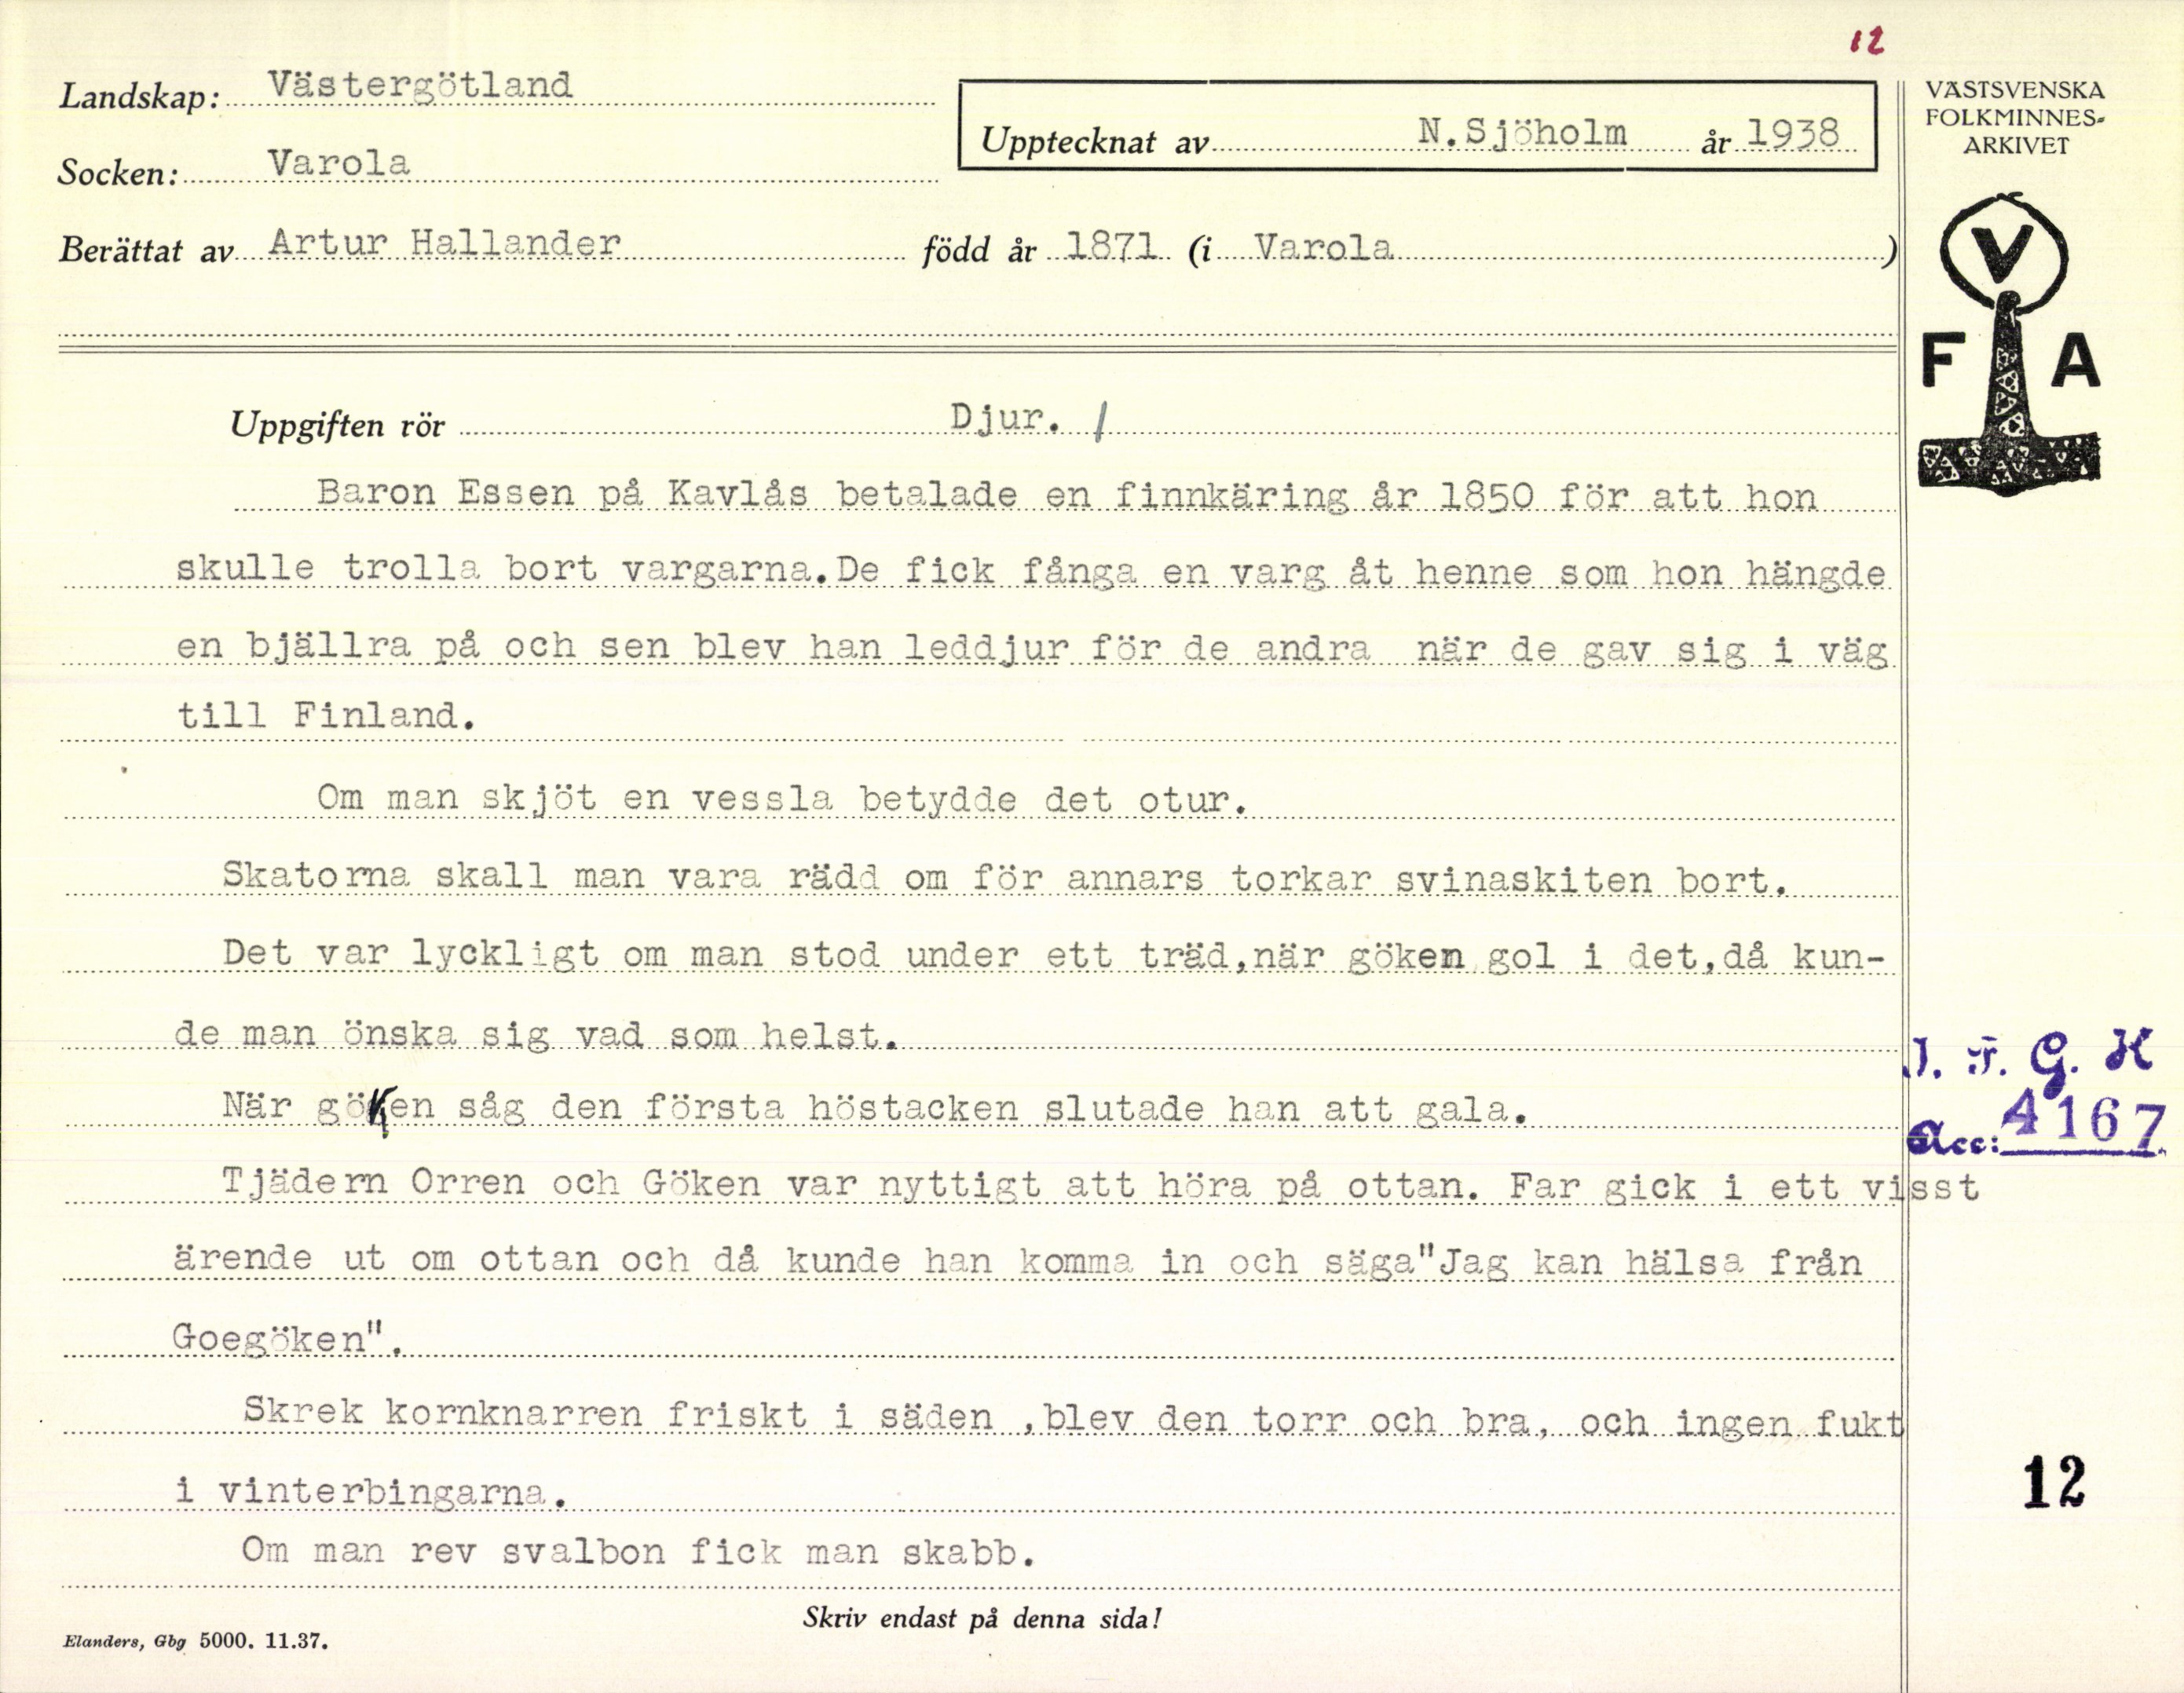 12
Landskap: Västergötland
Socken: Varola
Berättat av Artur Hallander född år 1871 (i Varola)
Upptecknat av N.Sjöholm år 1938
VÄSTSVENSKA
FOLKMINNES-
ARKIVET
V
F A
Uppgiften rör Djur. /
Baron Essen på Kavlås betalade en finnkäring år 1850 för att hon
skulle trolla bort vargarna.De fick fånga en varg åt henne som hon hängde
en bjällra på och sen blev han leddjur för de andra när de gav sig i väg
till Finland.
Om man skjöt en vessla betydde det otur.
Skatorna skall man vara rädd om för annars torkar svinaskiten bort.
Det var lyckligt om man stod under ett träd,när göken gol i det,då kun-
de man önska sig vad som helst.
När göken såg den första höstacken slutade han att gala.
Tjädern Orren och Göken var nyttigt att höra på ottan. Far gick i ett visst
ärende ut om ottan och då kunde han komma in och säga"Jag kan hälsa från
Goegöken".
Skrek kornknarren friskt i säden ,blev den torr och bra, och ingen fukt
i vinterbingarna.
Om man rev svalbon fick man skabb.
I. F. G. H
Acc: 4167
12
Skriv endast på denna sida!
Elanders, Gbg 5000. 11.37.